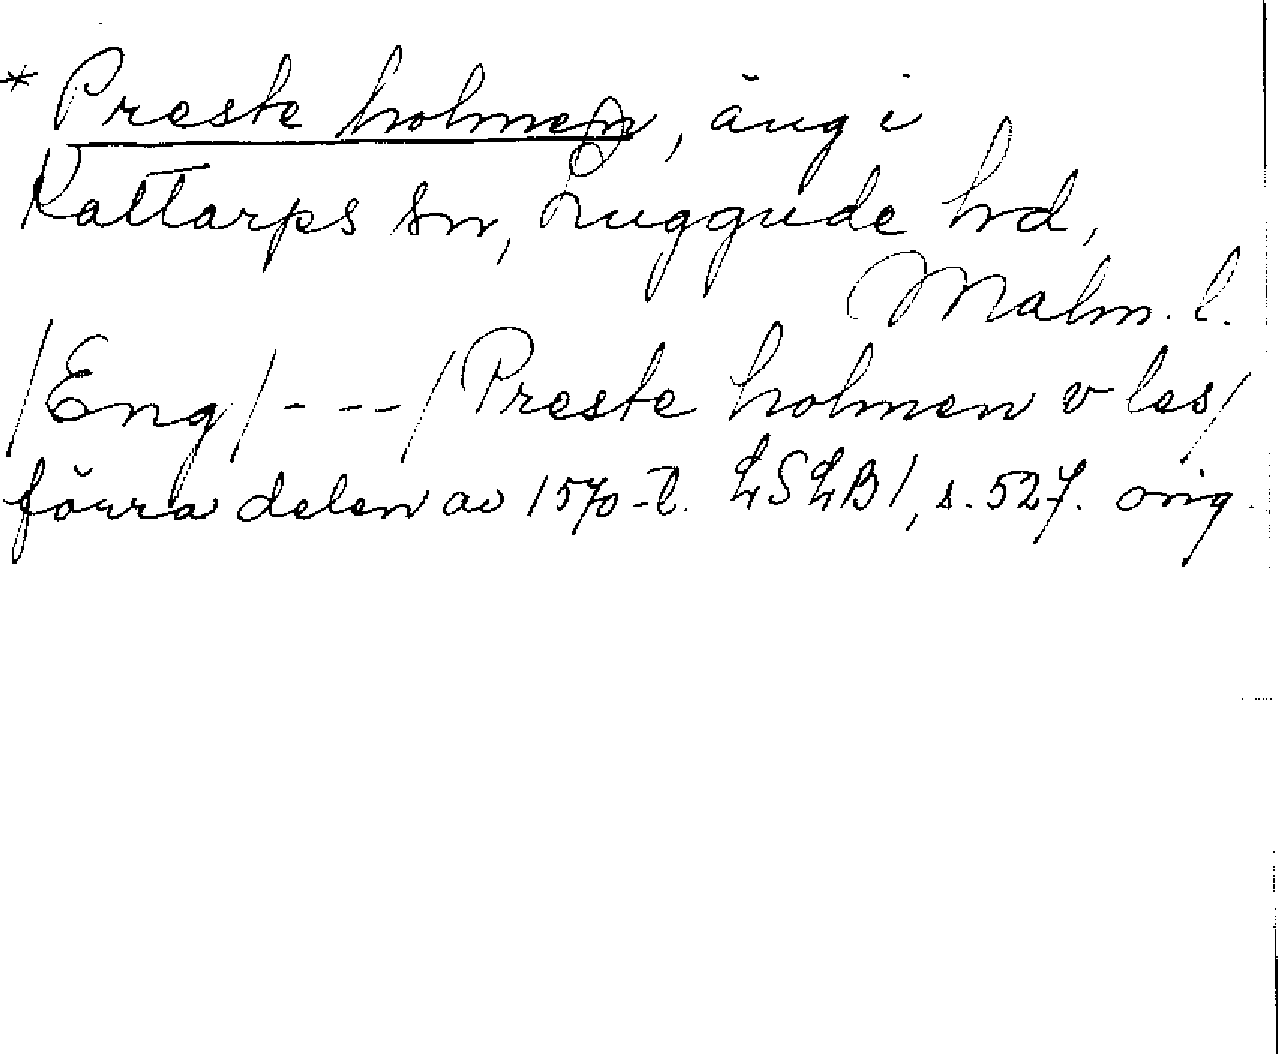 * Preste holmen, äng i
Kattarps sn, Luggude hd,
Malm. l.
/Eng/ - - - / Preste holmen v les/
förra delen av 1570-t. LSLB1, s. 527. orig.